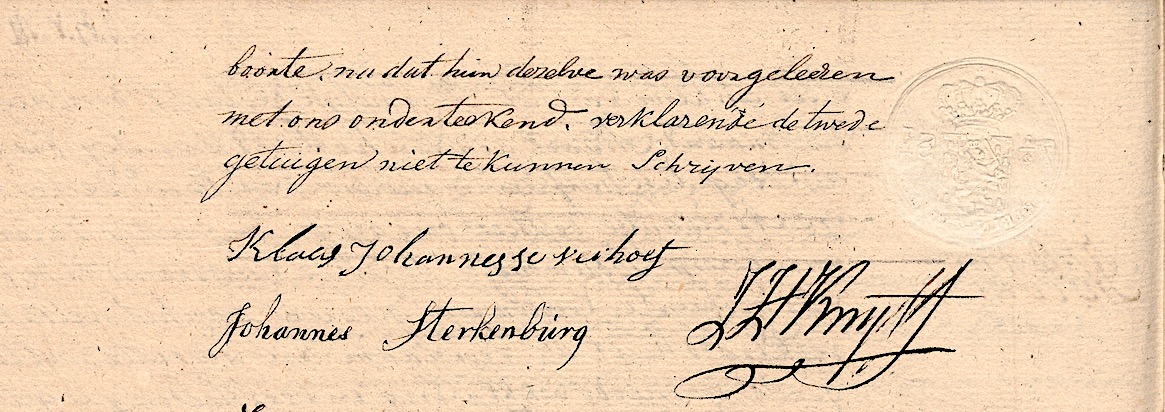 boorte, na dat hun dezelve was voorgeleezen
met ons onderteekend. verklarende de twede
getuigen niet te kunnen Schrijven.
Klaas Johannesse verhoef
Johannes Sterkenburg